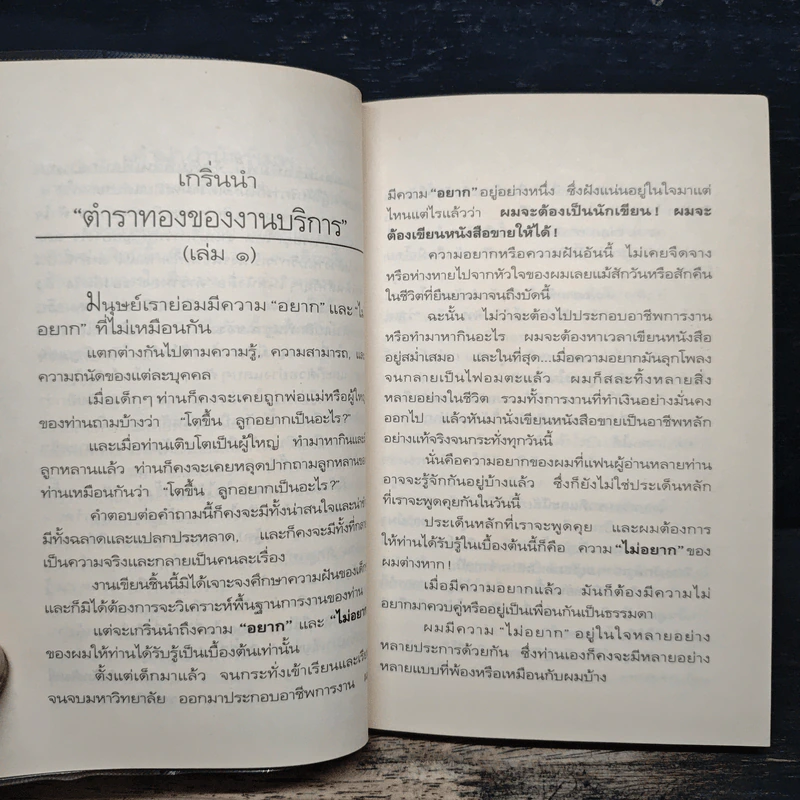 เกริ่นนำ
“ตำราทองของงานบริการ”
(เล่ม ๑)
มนุษย์เราย่อมมีความ “อยาก” และ “ไม่
อยาก” ที่ไม่เหมือนกัน
แตกต่างกันไปตามความรู้, ความสามารถ, และ
ความถนัดของแต่ละบุคคล
เมื่อเด็กๆ ท่านก็คงจะเคยถูกพ่อแม่หรือผู้ใหญ่
ของท่านถามบ้างว่า “โตขึ้น ลูกอยากเป็นอะไร?”
และเมื่อท่านเติบโตเป็นผู้ใหญ่ ทำมาหากินและมี
ลูกหลานแล้ว ท่านก็คงจะเคยหลุดปากถามลูกหลานของ
ท่านเหมือนกันว่า “โตขึ้น ลูกอยากเป็นอะไร?”
คำตอบต่อคำถามนี้ก็คงจะมีทั้งน่าสนใจและน่า
มีทั้งฉลาดและแปลกประหลาด, และก็คงจะมีทั้งที่กลาย
เป็นความจริงและกลายเป็นคนละเรื่อง
งานเขียนชิ้นนี้มิได้เจาะจงศึกษาความฝันของเด็ก
และก็มิได้ต้องการจะวิเคราะห์พื้นฐานการงานของท่าน
แต่จะเกริ่นนำถึงความ “อยาก” และ “ไม่อยาก”
ของผมให้ท่านได้รับรู้เป็นเบื้องต้นเท่านั้น
ตั้งแต่เด็กมาแล้ว จนกระทั่งเข้าเรียนและเรียน
จนจบมหาวิทยาลัย ออกมาประกอบอาชีพการงาน
มีความ “อยาก” อยู่อย่างหนึ่ง ซึ่งฝังแน่นอยู่ในใจมาแต่
ไหนแต่ไรแล้วว่า ผมจะต้องเป็นนักเขียน! ผมจะ
ต้องเขียนหนังสือขายให้ได้!
ความอยากหรือความฝันอันนี้ ไม่เคยจืดจาง
หรือห่างหายไปจากหัวใจของผมเลยแม้สักวันหรือสักคืน
ในชีวิตที่ยืนยาวมาจนถึงบัดนี้
ฉะนั้น ไม่ว่าจะต้องไปประกอบอาชีพการงาน
หรือทำมาหากินอะไร ผมจะต้องหาเวลาเขียนหนังสือ
อยู่สม่ำเสมอ และในที่สุด...เมื่อความอยากมันลุกโพลง
จนกลายเป็นไฟอมตะแล้ว ผมก็สละทิ้งหลายสิ่ง
หลายอย่างในชีวิต รวมทั้งการงานที่ทำเงินอย่างมั่นคง
ออกไป แล้วหันมานั่งเขียนหนังสือขายเป็นอาชีพหลัก
อย่างแท้จริงจนกระทั่งทุกวันนี้
นั่นคือความอยากของผมที่แฟนผู้อ่านหลายท่าน
อาจจะรู้จักกันอยู่บ้างแล้ว ซึ่งก็ยังไม่ใช่ประเด็นหลัก
ที่เราจะพูดคุยกันในวันนี้
ประเด็นหลักที่เราจะพูดคุย และผมต้องการ
ให้ท่านได้รับรู้ในเบื้องต้นนี้ก็คือ ความ “ไม่อยาก” ของ
ผมต่างหาก!
เมื่อมีความอยากแล้ว มันก็ต้องมีความไม่
อยากมาควบคู่หรืออยู่เป็นเพื่อนกันเป็นธรรมดา
ผมมีความ “ไม่อยาก” อยู่ในใจหลายอย่าง
หลายประการด้วยกัน ซึ่งท่านเองก็คงจะมีหลายอย่าง
หลายแบบที่พ้องหรือเหมือนกับผมบ้าง